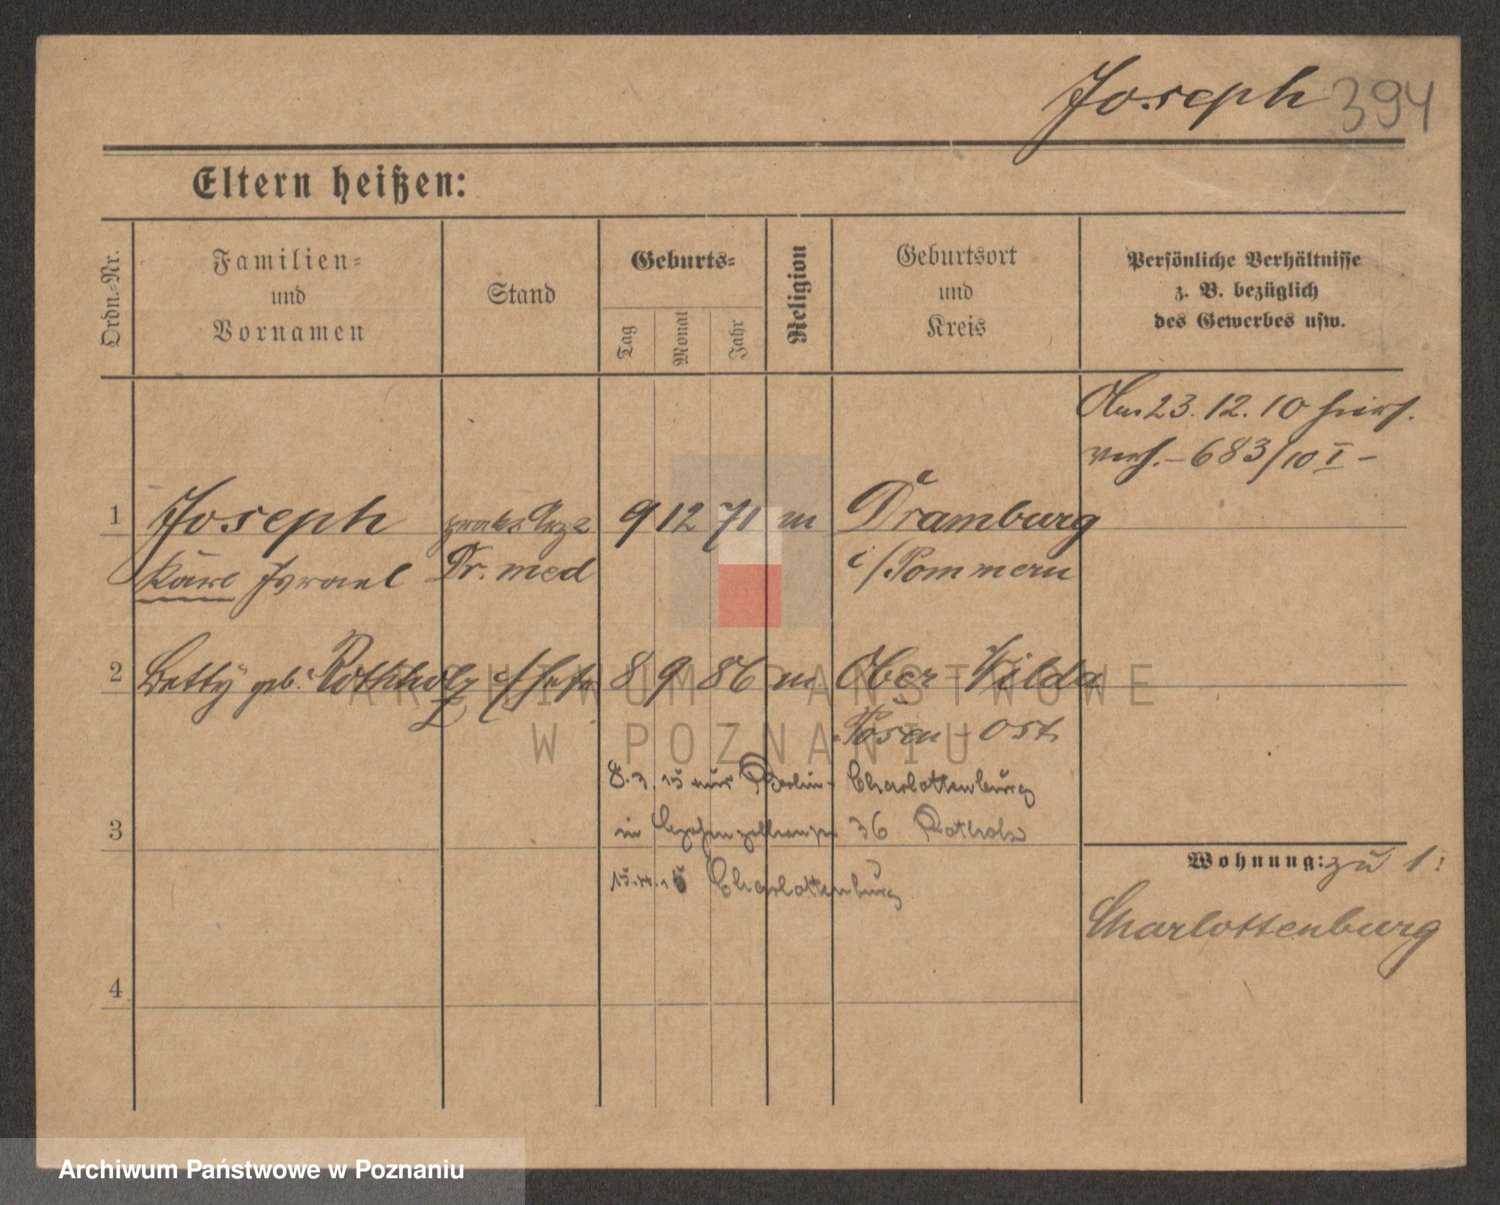 Joseph 394
Eltern heißen:
Ordn.-Nr.
Familien-
und
Vornamen
Stand
Geburts-
Tag
Monat
Jahr
Religion
Geburtsort
und
Kreis
Persönliche Verhältnisse
z. B. bezüglich
des Gewerbes usw.
Am 23. 12. 10 hier
verh. - 683/10 I -
1 Joseph prakt. Arzt 9 12 71 m Dramburg
Karl Israel Dr. med i/Pommern
2 Betty geb. Rothholz Ehefr 8 9 86 m Ober Wilda
Posen-Ost
15 aus Berlin-Charlottenburg
3 in 36 Rotholz
Charlottenburg
Wohnung: zu 1:
Charlottenburg
4
ARCHIWUM PAŃSTWOWE
W POZNANIU
Archiwum Państwowe w Poznaniu